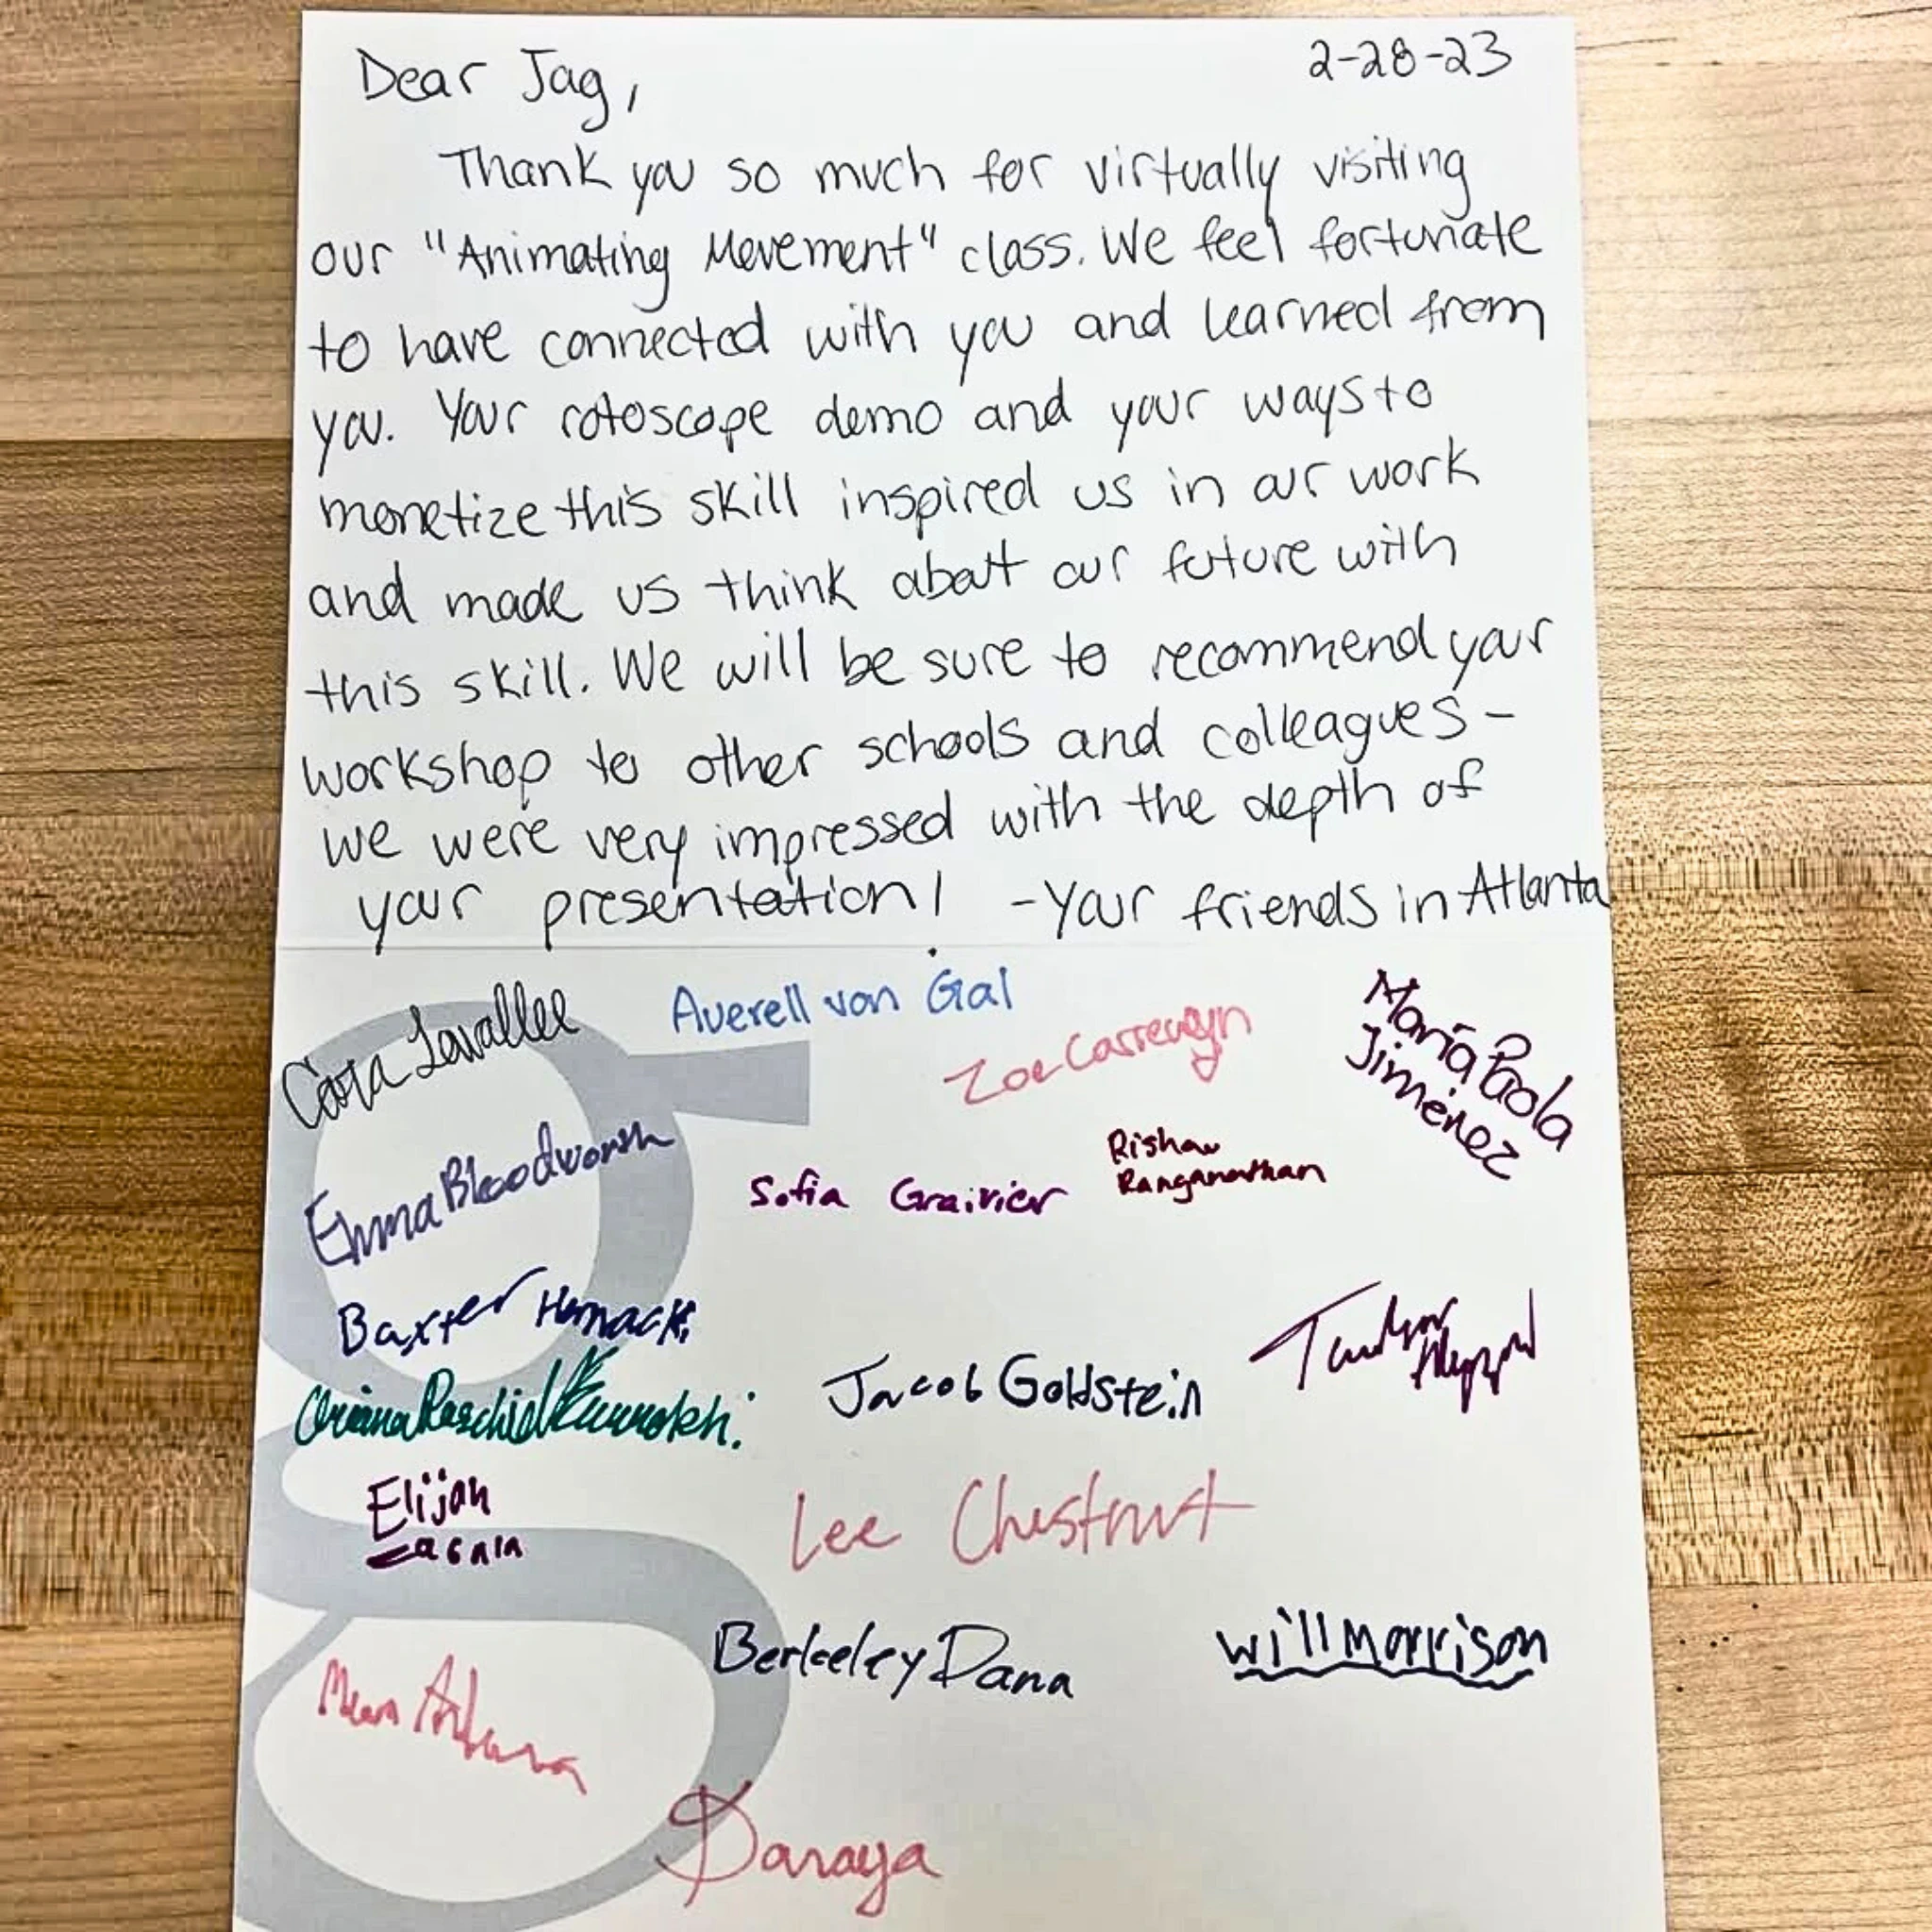 Dear Jag,
2-28-23
Thank you so much for virtually visiting
our "Animating Movement" class. We feel fortunate
to have connected with you and learned from
you. Your rotoscope demo and your ways to
monetize this skill inspired us in our work
and made us think about our future with
this skill. We will be sure to recommend your
workshop to other schools and colleagues-
we were very impressed with the depth of
your presentation! -Your friends in Atlanta
Cara Lavallee
Averell van Gal
Zoe
María Paola
Jiménez
Emma Bloodworth
Sofia
Rishav
Ranganathan
Baxter
Jacob Goldstein
Elijah
Lee Chestnut
Berkeley Dana
Will Morrison
Daraya